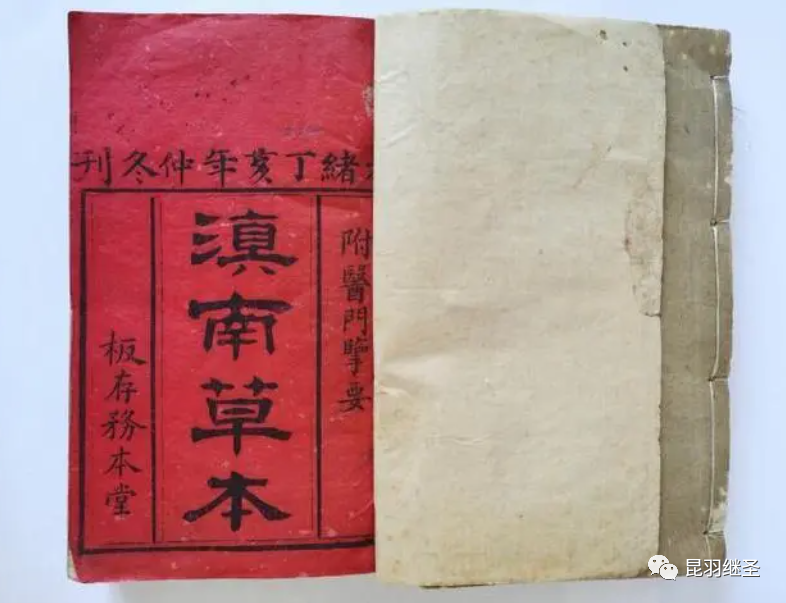 緒丁亥年仲冬刊
附醫門擥要
滇南草本
板存務本堂
昆羽继圣